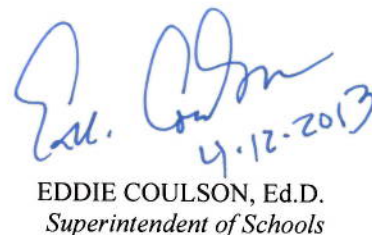 Edd. Coulson
4-12-2013
EDDIE COULSON, Ed.D.
Superintendent of Schools